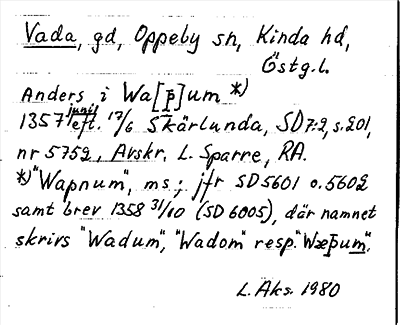 Vada, gd, Oppeby sn, Kinda hd,
Östg.l.
Anders i Wa[þ]um *)
juni
1357 eft. 17/6 Skärlunda, SD 7:2, s. 201,
nr 5752. Avskr. L. Sparre, RA.
*) "Wapnum", ms; jfr SD 5601 o. 5602
samt brev 1358 31/10 (SD 6005), där namnet
skrivs "Wadum", "Wadom" resp. "Wæþum".
L. Äks. 1980